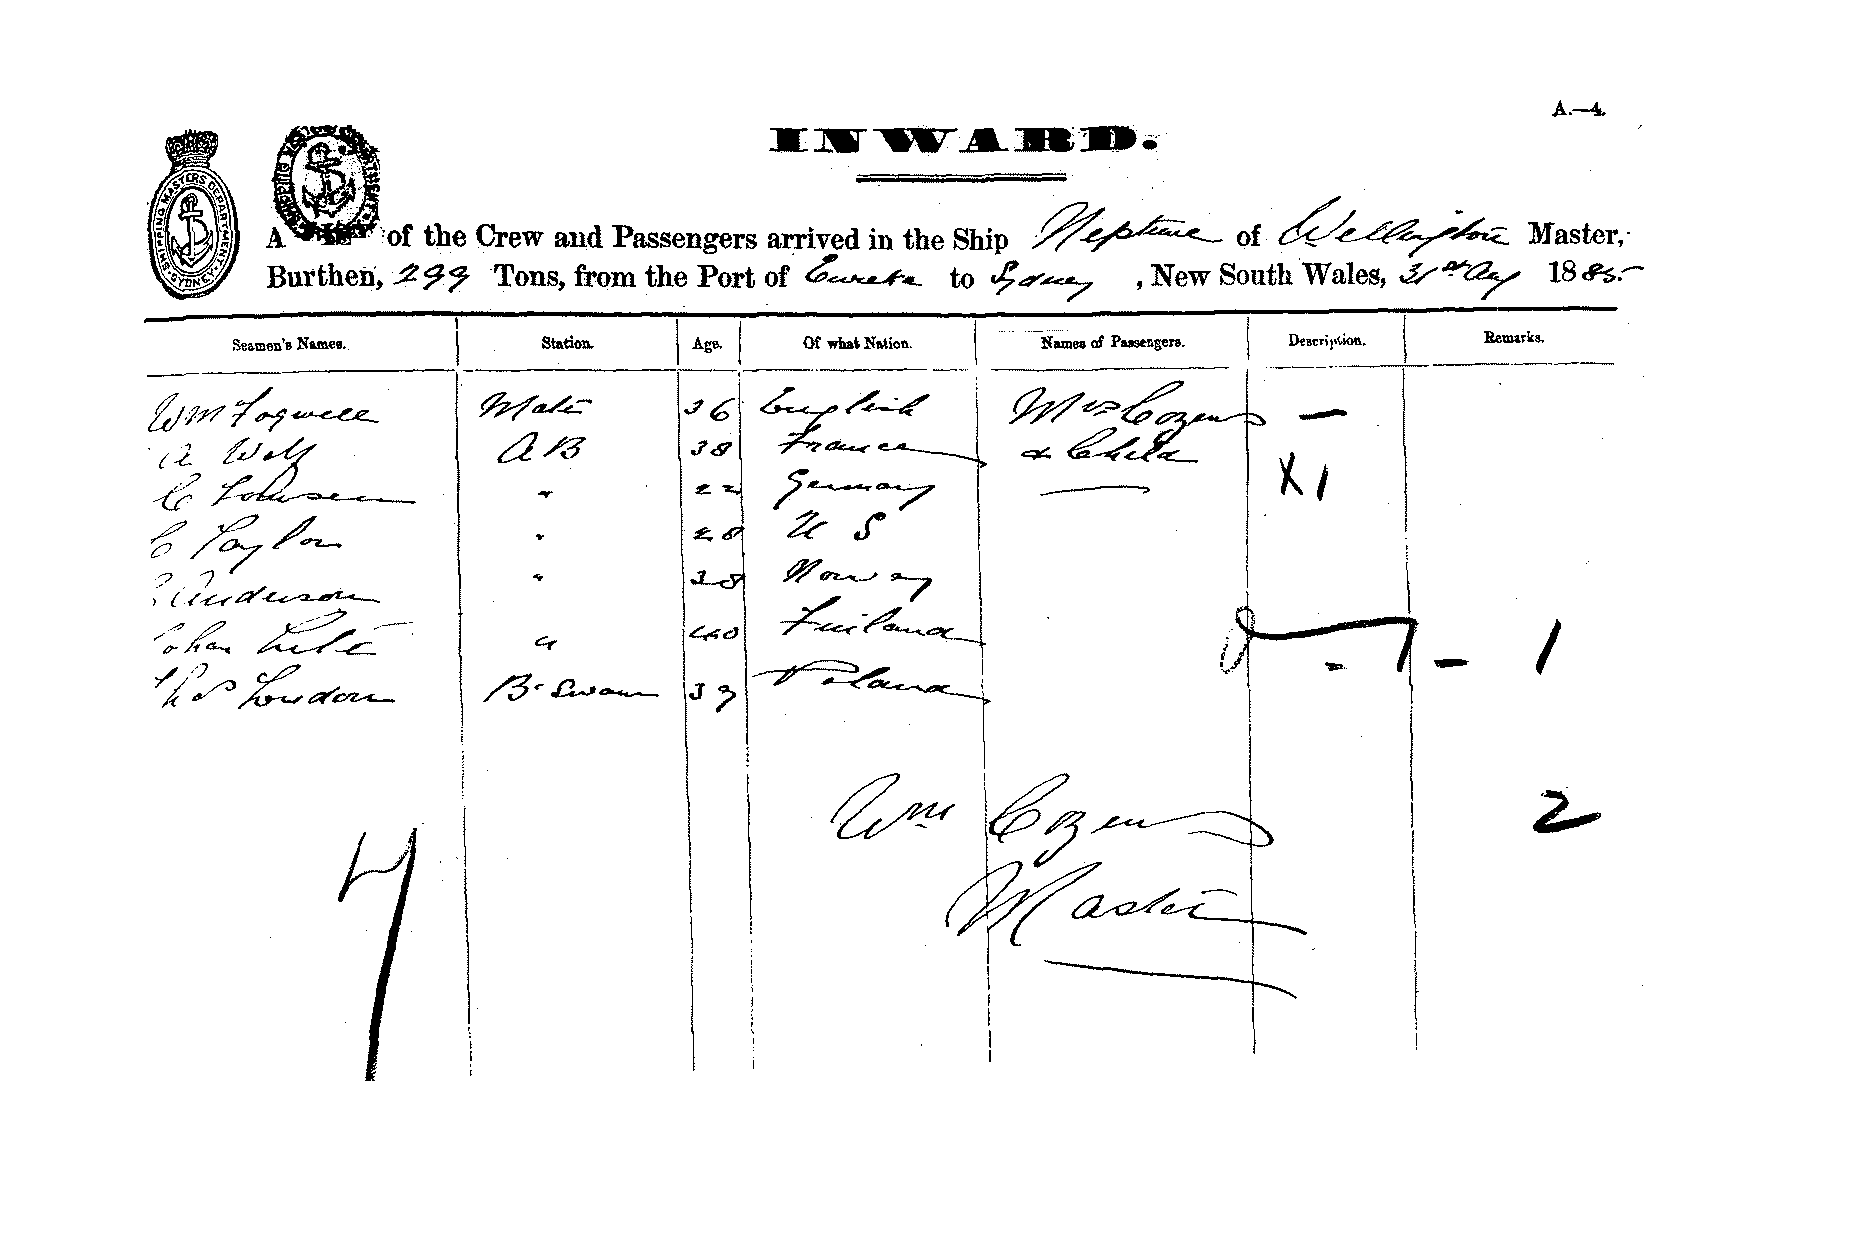 A.—4.
INWARD.
SHIPPING MASTERS DEPARTMENT SYDNEY
A of the Crew and Passengers arrived in the Ship Neptune of Wellington Master,
Burthen, 299 Tons, from the Port of Eureka to Sydney , New South Wales, 31st Aug 1885.
Seamen's Names. Station. Age. Of what Nation. Names of Passengers. Description. Remarks.
Wm Fogwell Mate 36 English Mrs Cozens —
A Wolf AB 38 France & Child
C " 22 Germany X1
C Taylor " 28 U S
Anderson " 38 Norway
" 40 Finland
- 1 - 1
London Bo Swain 39 Poland
Wm Cozens 2
Master
7